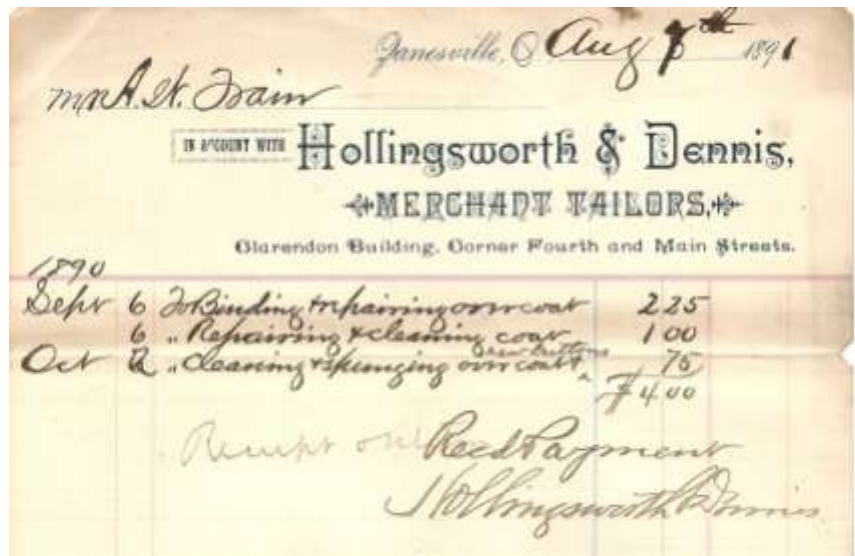 Zanesville, O Aug 7th 1891
Mr A. W. Train
IN ACCOUNT WITH Hollingsworth & Dennis,
MERCHANT TAILORS,
Clarendon Building, Corner Fourth and Main Streets.
1890
Sept 6 To Binding & repairing overcoat 2 25
6 " Repairing & cleaning coat 1 00
new buttons
Oct " Cleaning & spunging overcoat & 75
$4 00
Receipt Recd Payment
Hollingsworth & Dennis